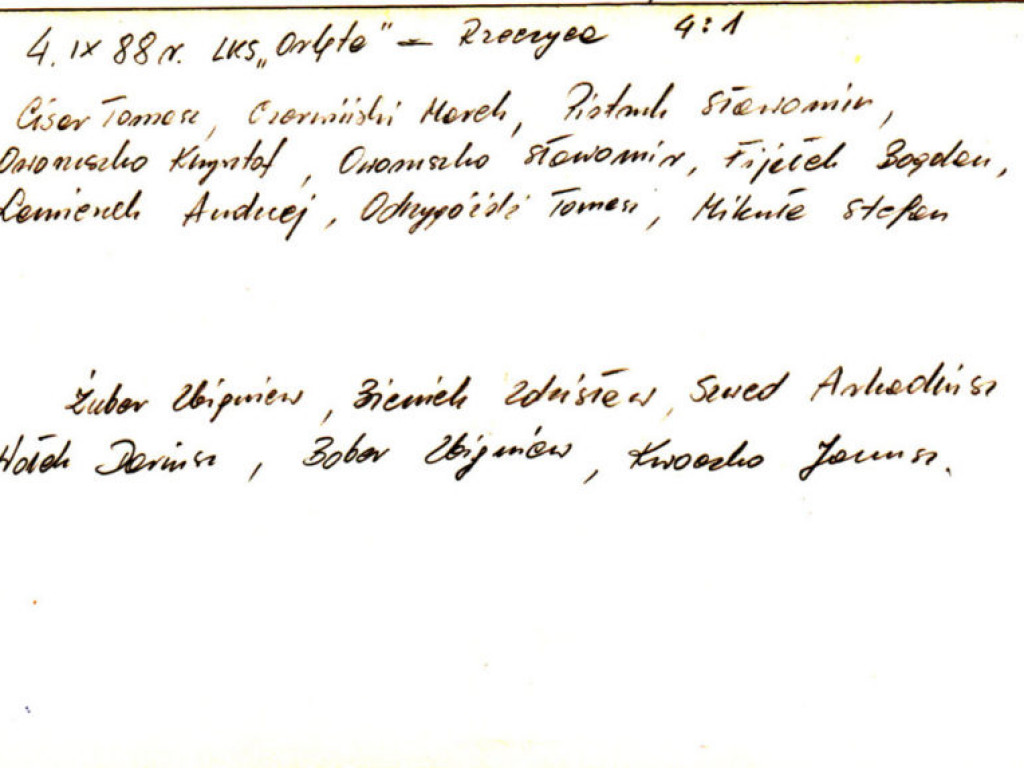 4. IX 88 r. LKS „Orlęta" – Rzeczyca 4:1
Cisar Tomasz, Czerwiński Marek, Pietruk Sławomir,
Owaruszko Krzysztof, Owaruszko Sławomir, Fijełek Bogdan,
Andrzej, Odrzygóźdź Tomasz, Mikuła Stefan
Żuber Zbigniew, Bieniek Zdzisław, Szwed Arkadiusz
Wołek Dariusz, Bober Zbigniew, Kwoczko Janusz.